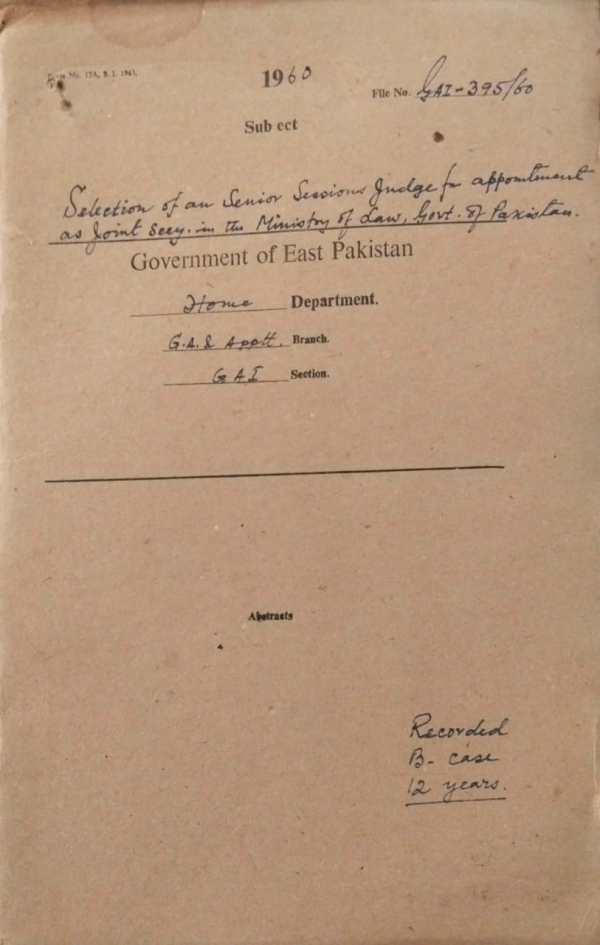 Form No. 12A, S. I. 1961.
1960
File No. GAI-395/60
Sub ect
Selection of an Senior Sessions Judge for appointment
as Joint Secy. in the Ministry of Law, Govt. of Pakistan.
Government of East Pakistan
Home Department.
G.A. & Apptt. Branch.
GAI Section.
Abstracts
Recorded
B- case
12 years.